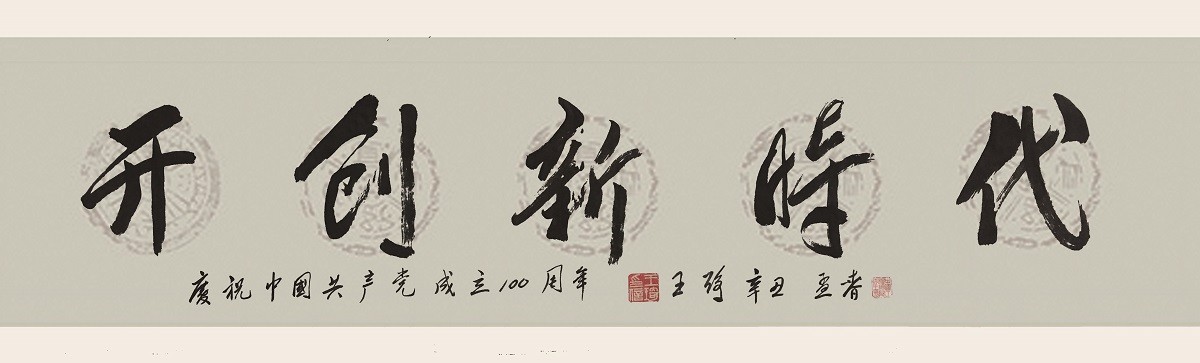 开创新時代
慶祝中國共产党成立100周年 王琦 辛丑 孟春